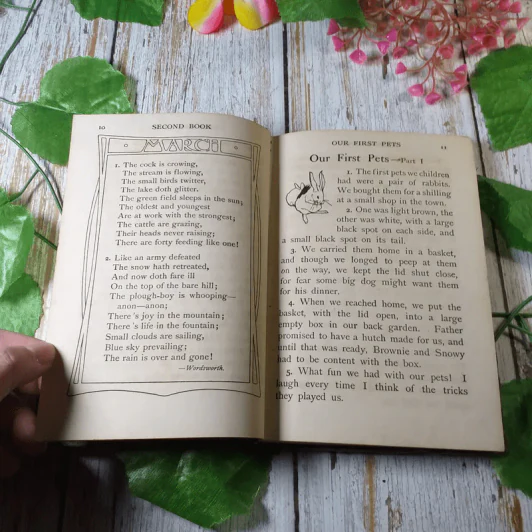 10 SECOND BOOK
MARCH
1. The cock is crowing,
The stream is flowing,
The small birds twitter,
The lake doth glitter.
The green field sleeps in the sun;
The oldest and youngest
Are at work with the strongest;
The cattle are grazing,
Their heads never raising;
There are forty feeding like one!
2. Like an army defeated
The snow hath retreated,
And now doth fare ill
On the top of the bare hill;
The plough-boy is whooping—
anon—anon;
There's joy in the mountain;
There's life in the fountain;
Small clouds are sailing,
Blue sky prevailing;
The rain is over and gone!
—Wordsworth.
OUR FIRST PETS 11
Our First Pets—Part I
1. The first pets we children
had were a pair of rabbits.
We bought them for a shilling
at a small shop in the town.
2. One was light brown, the
other was white, with a large
black spot on each side, and
a small black spot on its tail.
3. We carried them home in a basket,
and though we longed to peep at them
on the way, we kept the lid shut close,
for fear some big dog might want them
for his dinner.
4. When we reached home, we put the
basket, with the lid open, into a large
empty box in our back garden. Father
promised to have a hutch made for us, and
until that was ready, Brownie and Snowy
had to be content with the box.
5. What fun we had with our pets! I
laugh every time I think of the tricks
they played us.